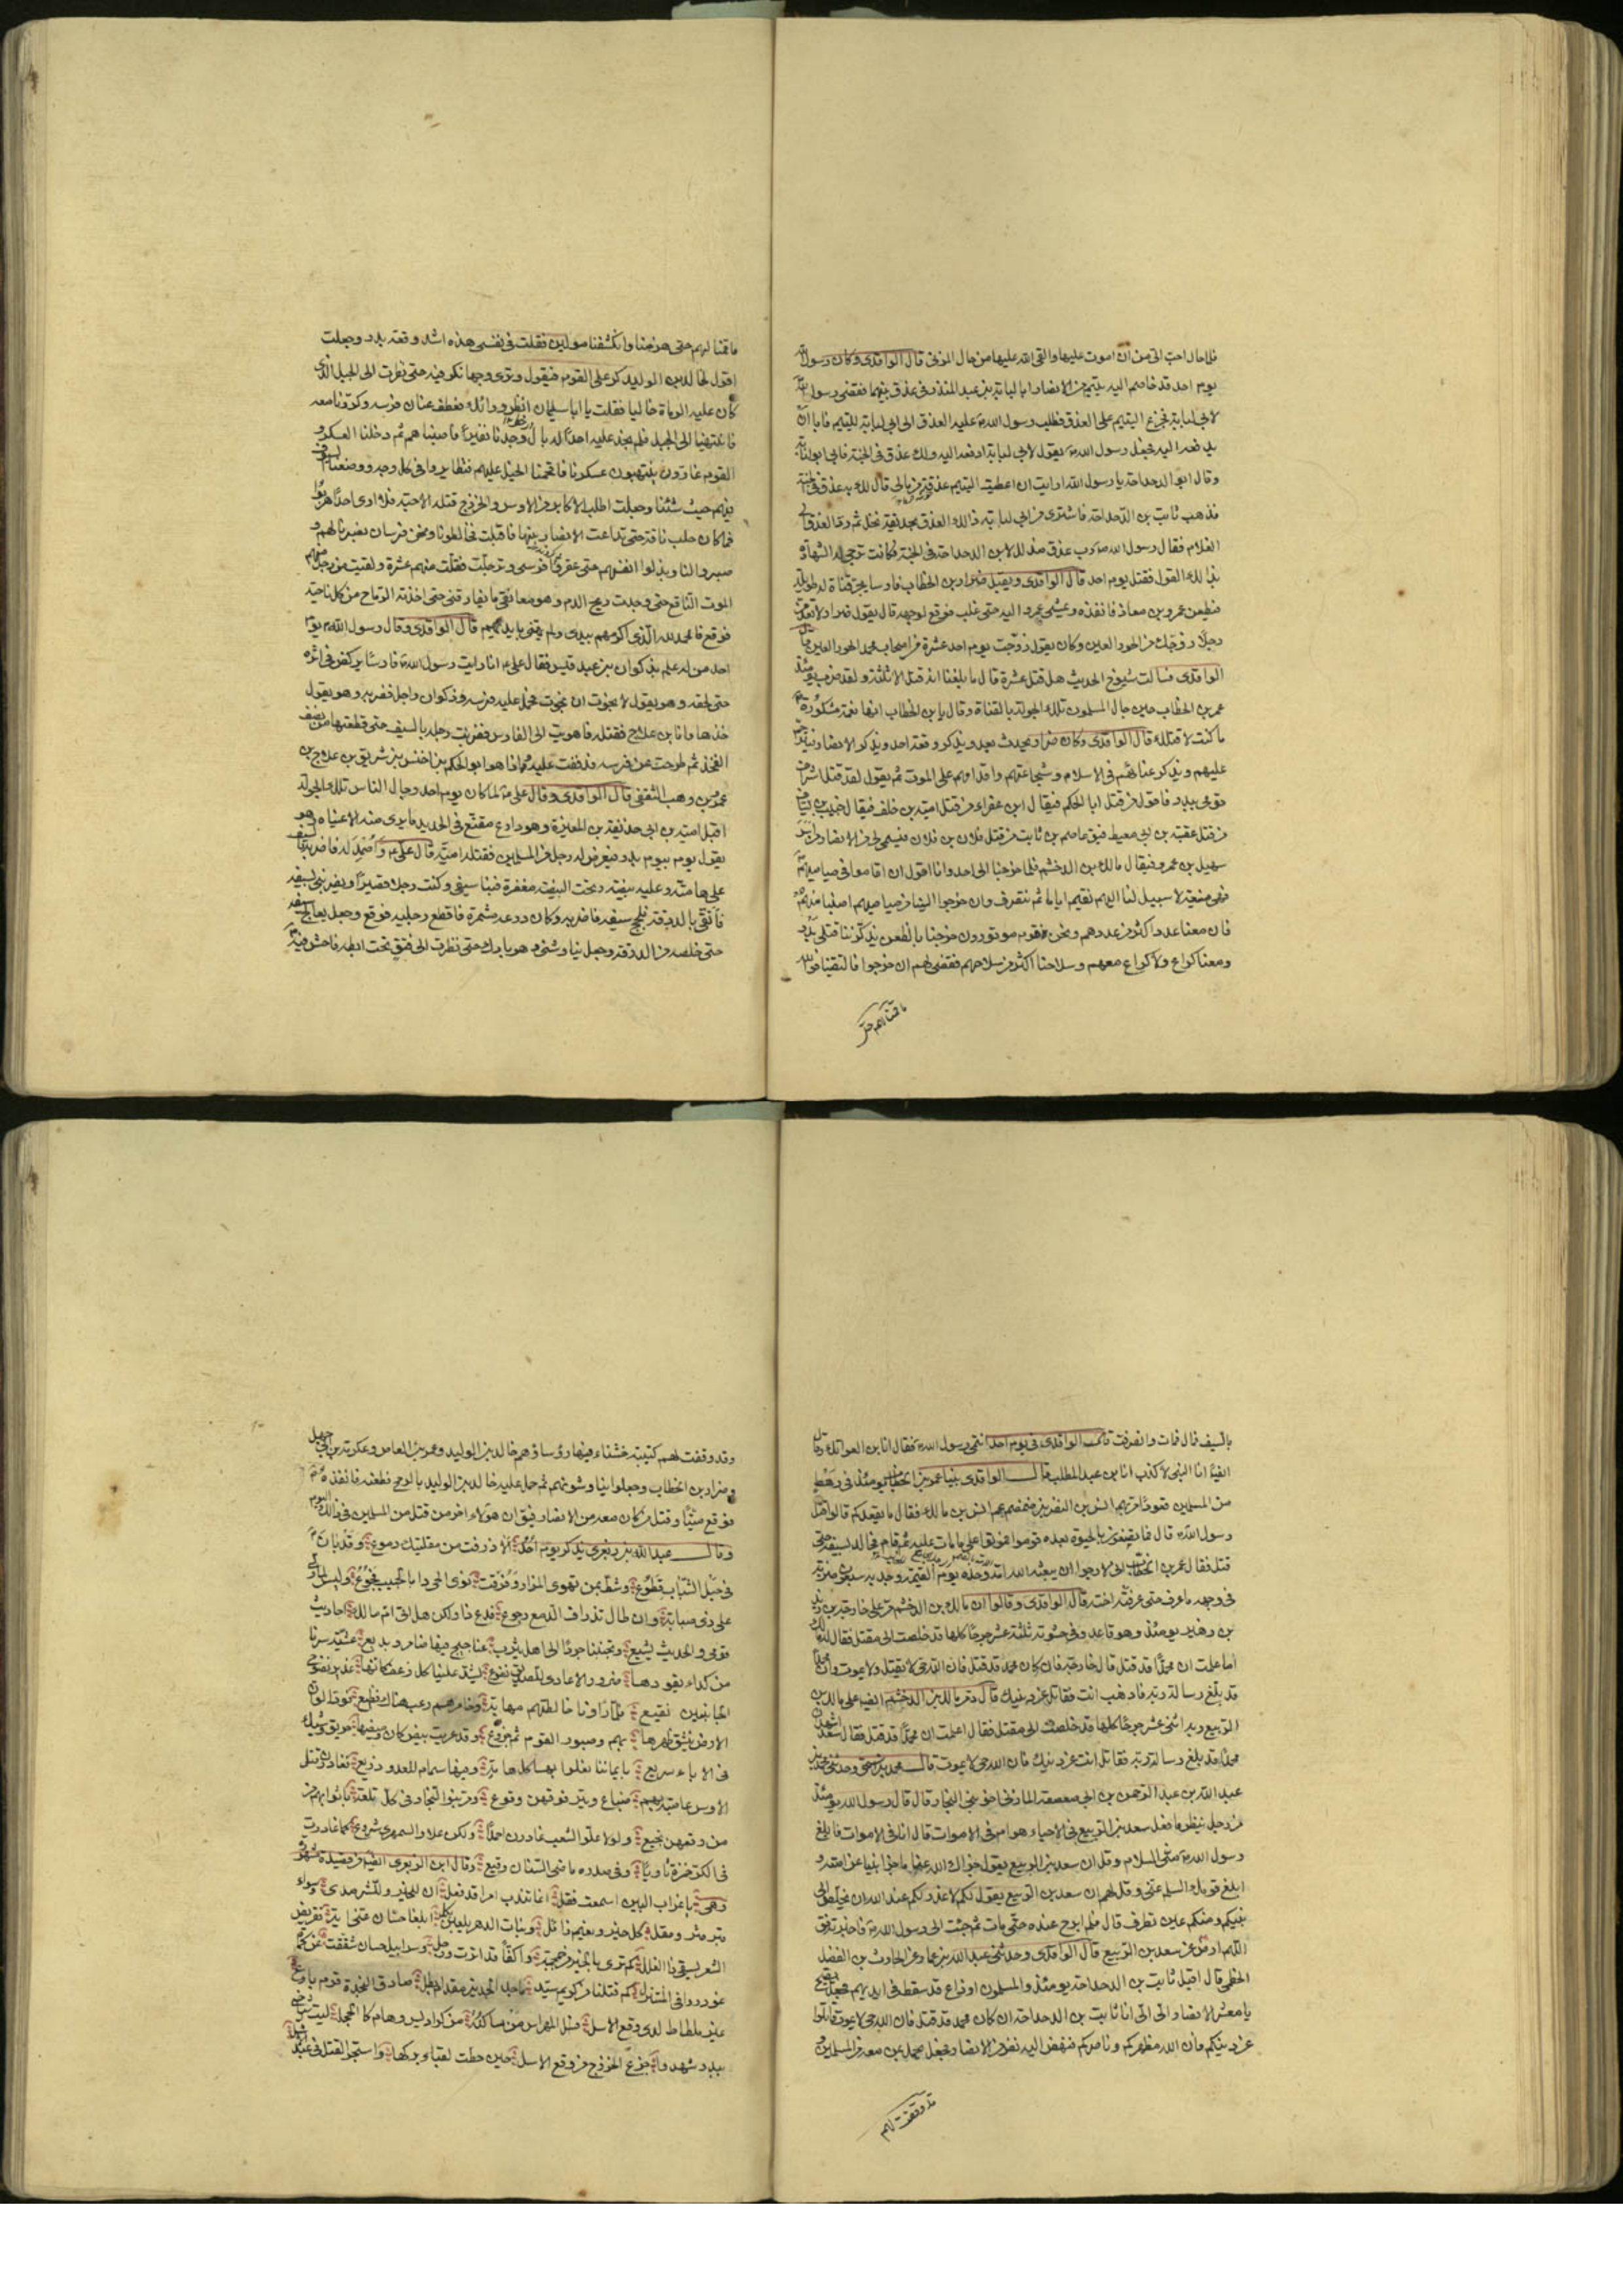 فلا حال احب الى من ان اموت عليها والقى الله عليها من حال المزنى قال الواقدى وكان رسول الله
يوم احد قد خاصم اليه يتيم من الانصار ابا لبابة بن عبد المنذر فى عذق بينهما فقضى رسول الله
لابى لبابة فجزع اليتيم على العذق فطلب رسول الله ص العذق الى ابى لبابة لليتيم فابى ان
يدفعه اليه فجعل رسول الله ص يقول لابى لبابة ادفعه اليه ولك عذق فى الجنة فابى ابو لبابة
وقال ابو الدحداحة يا رسول الله ارايت ان اعطيت اليتيم عذقه من مالى قال لك به عذق فى الجنة
فذهب ثابت بن الدحداحة فاشترى من ابى لبابة ذالك العذق بحديقة نخل ثم رد العذق الى
الغلام فقال رسول الله ص رب عذق مذلل لابن الدحداحة فى الجنة فكانت ترجى له الشهادة
بذالك القول فقتل يوم احد قال الواقدى ويقبل ضرار بن الخطاب فارسا يجر قناة له طويلة
فيطعن عمرو بن معاذ فانفذه ويمشى عمرو اليه حتى غلب فوقع لوجهه قال يقول ضرار لا تعدمن
رجلا زوجك من الحور العين وكان يقول زوجت يوم احد عشرة من اصحاب محمد الحور العين قال
الواقدى فسالت شيوخ الحديث هل قتل عشرة قال ما بلغنا انه قتل الا ثلثة ولقد ضرب يومئذ
عمر بن الخطاب حين جال المسلمون تلك الجولة بالقناة وقال يا بن الخطاب انها نعمة مشكورة
ما كنت لاقتلك قال الواقدى وكان ضرار يحدث بعد ويذكر وقعة احد ويذكر الانصار فيترحم
عليهم ويذكر غناءهم فى الاسلام وشجاعتهم واقدامهم على الموت ثم يقول لقد قتل اشراف
قومى ببدر فاقول من قتل ابا الحكم فيقال ابن عفراء من قتل امية بن خلف فيقال خبيب بن يساف
من قتل عقبة بن ابى معيط فيق عاصم بن ثابت من قتل فلان بن فلان فيسمى لى من الانصار من اسر
سهيل بن عمرو فيقال مالك بن الدخشم فلما خرجنا الى احد وانا اقول ان اقاموا فى صياصيهم
فهى منيعة لا سبيل لنا اليهم نقيم اياما ثم ننصرف وان خرجوا الينا من صياصيهم اصبنا منهم
فان معنا عددا اكثر من عددهم ونحن قوم موتورون خرجنا بالظعن يذكرننا قتلى بدر
ومعنا كراع ولا كراع معهم وسلاحنا اكثر من سلاحهم فقضى لهم ان خرجوا فالتقينا فوالله
ما قمنا لهم حتى
ما قمنا لهم حتى هزمنا وانكشفنا مولين فقلت فى نفسى هذه اشد وقعة بدر وجعلت
اقول لخالد بن الوليد كر على القوم فيقول وترى وجها نكر فيه حتى نظرت الى الجبل الذى
كان عليه الرماة خاليا فقلت يا ابا سليمان انظر وراءك فعطف عنان فرسه وكررنا معه
فانتهينا الى الجبل فلم نجد عليه احدا له بال وجدنا نفيرا فاصبناهم ثم دخلنا العسكر و
القوم غارون ينتهبون عسكرنا فاقحمنا الخيل عليهم فتطايروا فى كل وجه ووضعنا السيوف
فيهم حيث شئنا وجعلت اطلب الاكابر من الاوس والخزرج قتلة الاحبة فلا ارى احدا هربوا
فما كان حلب ناقة حتى تداعت الانصار بينها فاقبلت فخالطونا ونحن فرسان فصبرنا لهم و
صبروا لنا وبذلوا انفسهم حتى عقروا فرسى وترجلت فقتلت منهم عشرة ولقيت من رجل منهم
الموت الناقع حتى وجدت ريح الدم وهو معانقى ما يفارقنى حتى اخذته الرماح من كل ناحية
فوقع فالحمد لله الذى اكرمهم بيدى ولم يهنى بايديهم قال الواقدى وقال رسول الله ص يوم
احد من له علم بذكوان بن عبد قيس فقال على ع انا رايت رسول الله ص فارسا يركض فى اثره
حتى لحقه وهو يقول لا نجوت ان نجوت فحمل عليه فرسه وذكوان راجل فضربه وهو يقول
خذها وانا بن علاج فقتله فاهويت الى الفارس فضربت رجله بالسيف حتى قطعتها من نصف
الفخذ ثم طرحت عن فرسه فذففت عليه فاذا هو ابو الحكم بن اخنس بن شريق بن علاج بن
عمرو بن وهب الثقفى قال الواقدى وقال على ع لما كان يوم احد وجال الناس تلك الجولة
اقبل امية بن ابى حذيفة بن المغيرة وهو دارع مقنع فى الحديد ما يرى منه الا عيناه وهو
يقول يوم بيوم بدر فيعرض له رجل من المسلمين فقتله امية قال على ع واصمد له فاضربه بالسيف
على هامته وعليه بيضة وتحت البيضة مغفرة فنبا سيفى وكنت رجلا قصيرا ويضربنى بسيفه
فاتقى بالدرقة فلحج سيفه فاضربه وكان درعه مشمرة فاقطع رجليه فوقع وجعل يعالج سيفه
حتى خلصه من الدرقة وجعل يناوشنى وهو بارك حتى نظرت الى فتق تحت ابطه فاحش فيه
بالسيف فمال فمات وانصرفت قال الواقدى فى يوم احد انتمى رسول الله ص فقال انا ابن العواتك وقال
ايضا انا النبى لا كذب انا ابن عبد المطلب قال الواقدى بينا عمر بن الخطاب يومئذ فى رهط
من المسلمين قعودا مر بهم انس بن النضر بن ضمضم عم انس بن مالك فقال ما يقعدكم قالوا قتل
رسول الله ص قال فما تصنعون بالحيوة بعده قوموا فموتوا على ما مات عليه ثم قام فجالد بسيفه حتى
قتل فقال عمر بن الخطاب انى لارجو ان يبعثه الله امة وحده يوم القيمة ووجد به سبعون ضربة
فى وجهه ما عرف حتى عرفته اخته قال الواقدى وقالوا ان مالك بن الدخشم مر على خارجة بن زيد
بن زهير يومئذ وهو قاعد وفى حشوته ثلثة عشر جرحا كلها قد خلصت الى مقتل فقال له مالك
اما علمت ان محمدا قد قتل قال خارجة فان كان محمد قد قتل فان الله حى لا يقتل ولا يموت وان محمدا
قد بلغ رسالة ربه فاذهب انت فقاتل عن دينك قال ومر مالك بن الدخشم ايضا على سعد بن
الربيع وبه اثنى عشر جرحا كلها قد خلصت الى مقتل فقال اعلمت ان محمدا قد قتل فقال سعد اشهد ان
محمدا قد بلغ رسالة ربه فقاتل انت عن دينك فان الله حى لا يموت قال محمد بن اسحق وحدثنى محمد بن
عبد الله بن عبد الرحمن بن ابى صعصعة المازنى اخو بنى النجار قال قال رسول الله يومئذ
من رجل ينظر ما فعل سعد بن الربيع فى الاحياء هو ام فى الاموات قال انا فى الاموات فابلغ
رسول الله ص منى السلام وقل ان سعد بن الربيع يقول جزاك الله عنا ما جزا نبيا عن امته و
ابلغ قومك السلم عنى وقل لهم ان سعد بن الربيع يقول لكم لا عذر لكم عند الله ان يخلص الى
نبيكم ومنكم عين تطرف قال فلم ابرح عنده حتى مات ثم جئت الى رسول الله ص فاخبرته فق
اللهم ارض عن سعد بن الربيع قال الواقدى وحدثنى عبد الله بن عمار عن الحارث بن الفضل
الخطمى قال اقبل ثابت بن الدحداحة يومئذ والمسلمون اوزاع قد سقط فى ايديهم فجعل يصيح
يا معشر الانصار الى الى انا ثابت بن الدحداحة ان كان محمد قد قتل فان الله حى لا يموت قاتلوا
عن دينكم فان الله مظهركم وناصركم فنهض اليه نفر من الانصار فجعل يحمل بمن معه من المسلمين و
قد وقفت لهم
وقد وقفت لهم كتيبة خشناء فيها رؤساؤهم خالد بن الوليد وعمرو بن العاص وعكرمة بن ابى جهل
وضرار بن الخطاب وجعلوا يناوشونهم ثم حمل عليه خالد بن الوليد بالرمح فطعنه فانفذه
فوقع ميتا وقتل من كان معه من الانصار فيق ان هؤلاء اخر من قتل من المسلمين فى ذلك اليوم
وقال عبد الله بن زبعرى يذكر يوم احد الا ذرفت من مقلتيك دموع وقد بان
فى حبل الشباب قطوع وشط بمن تهوى المزار وفرقت نوى الحى دار بالحبيب فجوع وليس لما ولى
على ذى صبابة وان طال تذراف الدمع رجوع فدع ذا ولكن هل اتى ام مالك احاديث
قومى والحديث يشيع ومجنبنا جردا الى اهل يثرب عناجيج فيها ضامر وبديع عشية سرنا
من كداء يقودها ضرور الاعادى للصديق نفوع يشد علينا كل زعف كانها غدير نضوح
الجانبين نقيع فلما راونا خالطتهم مهابة وخامرهم رعب هناك فظيع فودوا لو ان
الارض ينشق ظهرها بهم وصبور القوم ثم جزوع وقد عريت بيض كان وميضها حريق وشيك
فى الاباء سريع بايماننا نعلوا بها كل هامة وفيها سمام للعدو ذريع فغادرن قتلى
الاوس عاصبة بهم ضباع وطير فوقهن وقوع ومر بنو النجار فى كل تلعة باثوابهم من
من وقعهن نجيع ولولا علو الشعب غادرن احمدا ولكن علا والسمهرى شروع كما غادرت
فى الكر حمزة ثاويا وفى صدره ماضى السنان وقيع وقال ابن الزبعرى ايضا من قصيدة مشهورة
وهى يا غراب البين اسمعت فقل انما تندب امرا قد فعل ان للخير وللشر مدى وسواء
قبر مثر ومقل كل خير ونعيم زائل وبنات الدهر يلعبن بكل ابلغا حسان عنى اية فقريض
الشعر يشفى ذا الغلل كم ترى بالجسر من جمجمة واكفا قد اترت ورجل وسرابيل حسان شققت عن كماة
غودروا فى المنتزل كم قتلنا من كريم سيد ماجد الجدين مقدام بطل صادق النجدة قوم بارع
غير ملطاط لدى وقع الاسل فسل المهراس من ساكنه من كراديس وهام كالحجل ليت اشياخى
ببدر شهدوا جزع الخزرج من وقع الاسل حين حطت لقباء بركها واستحر القتل فى عبد